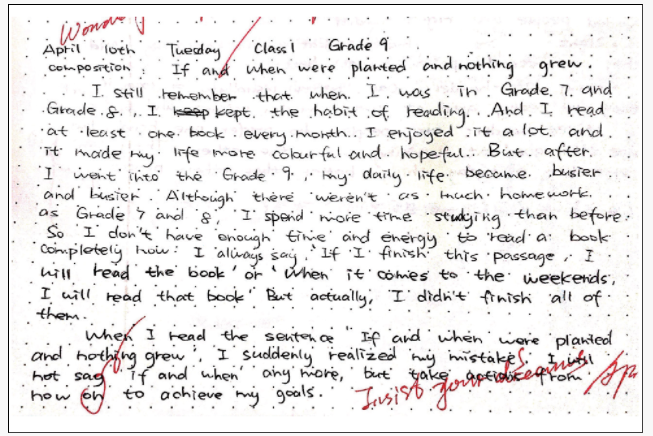 Wonderf
April 10th Tuesday Class 1 Grade 9
composition: If and when were planted and nothing grew.
I still remember that when I was in Grade 7 and
Grade 8, I keep kept the habit of reading. And I read
at least one book every month. I enjoyed it a lot, and
it made my life more colourful and hopeful. But after
I went into the Grade 9, my daily life became busier
and busier. Although there weren't as much homework
as Grade 7 and 8, I spend more time studying than before.
So I don't have enough time and energy to read a book
completely now. I always say 'If I finish this passage, I
will read the book' or 'When it comes to the weekends,
I will read that book' But actually, I didn't finish all of
them.
When I read the sentence "If and when were planted
and nothing grew', I suddenly realized my mistakes. I will
not say if and when any more, but take actions from
now on to achieve my goals.
Insist your dreams